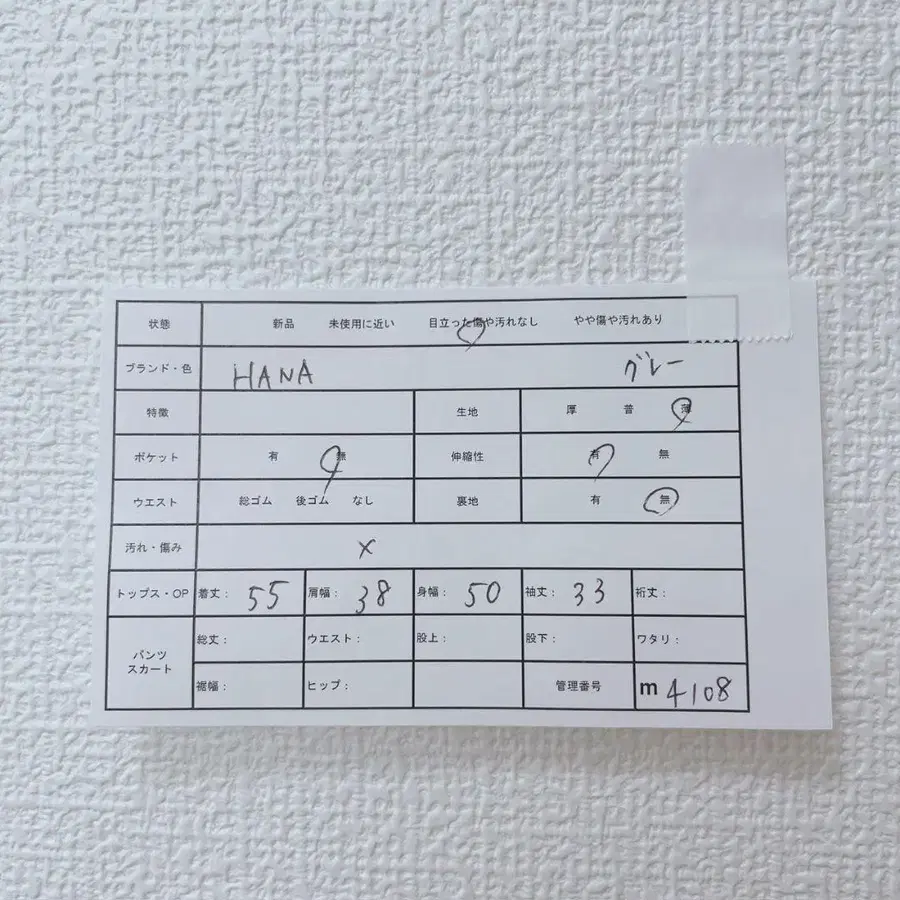 状態 新品 未使用に近い 目立った傷や汚れなし やや傷や汚れあり
ブランド・色 HANA グレー
特徴 生地 厚 普 薄
ポケット 有 無 伸縮性 有 無
ウエスト 総ゴム 後ゴム なし 裏地 有 無
汚れ・傷み ×
トップス・OP 着丈: 55 肩幅: 38 身幅: 50 袖丈: 33 裄丈:
パンツ スカート 総丈: ウエスト: 股上: 股下: ワタリ:
裾幅: ヒップ: 管理番号 m 4108